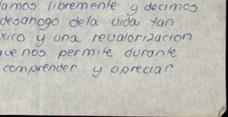 amos libremente y decimos
desahogo de la vida tan
xico y una revalorizacion
ue nos permite durante
comprender y apreciar